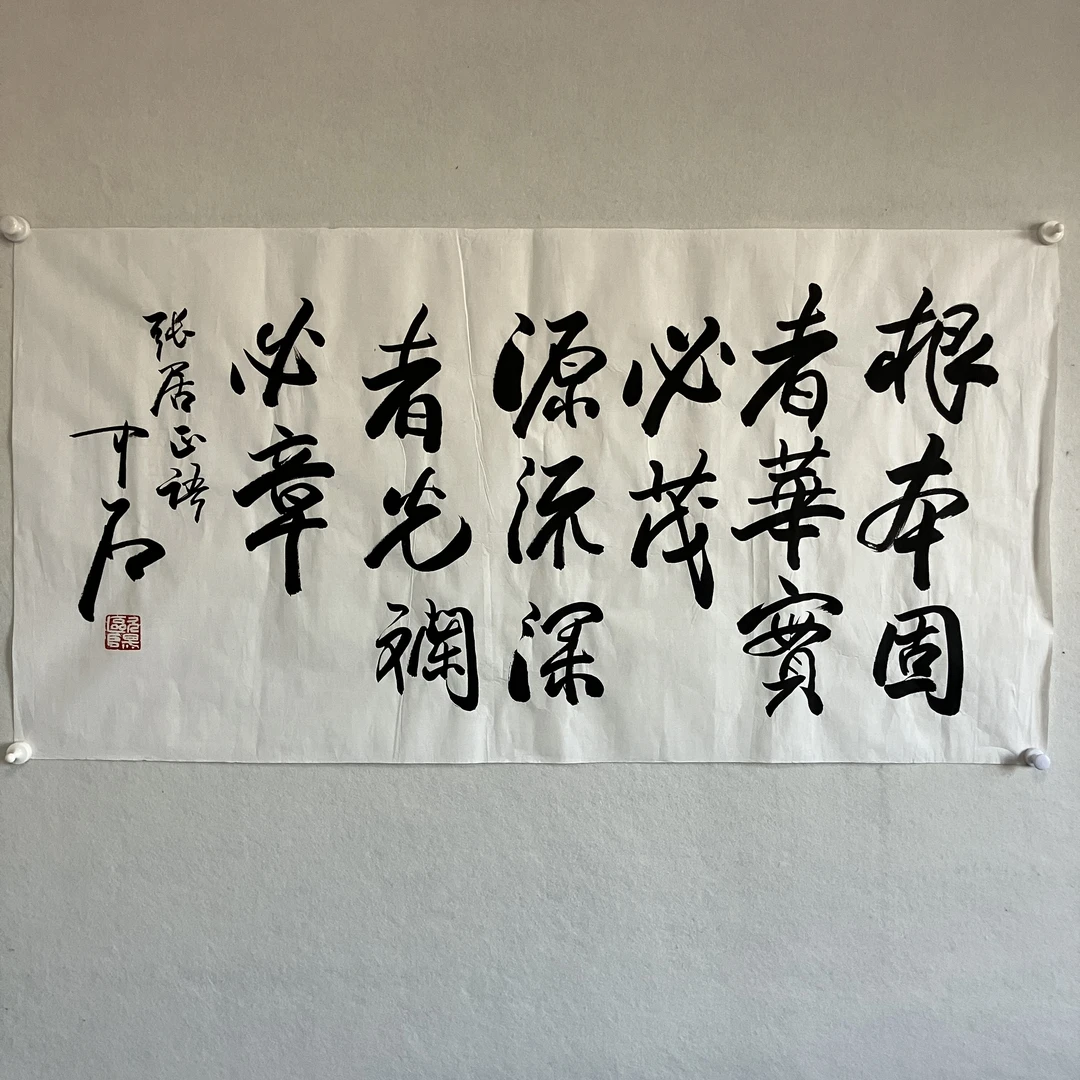 根本固
者華實
必茂
源流深
者光襴
必章
張居正語
中石